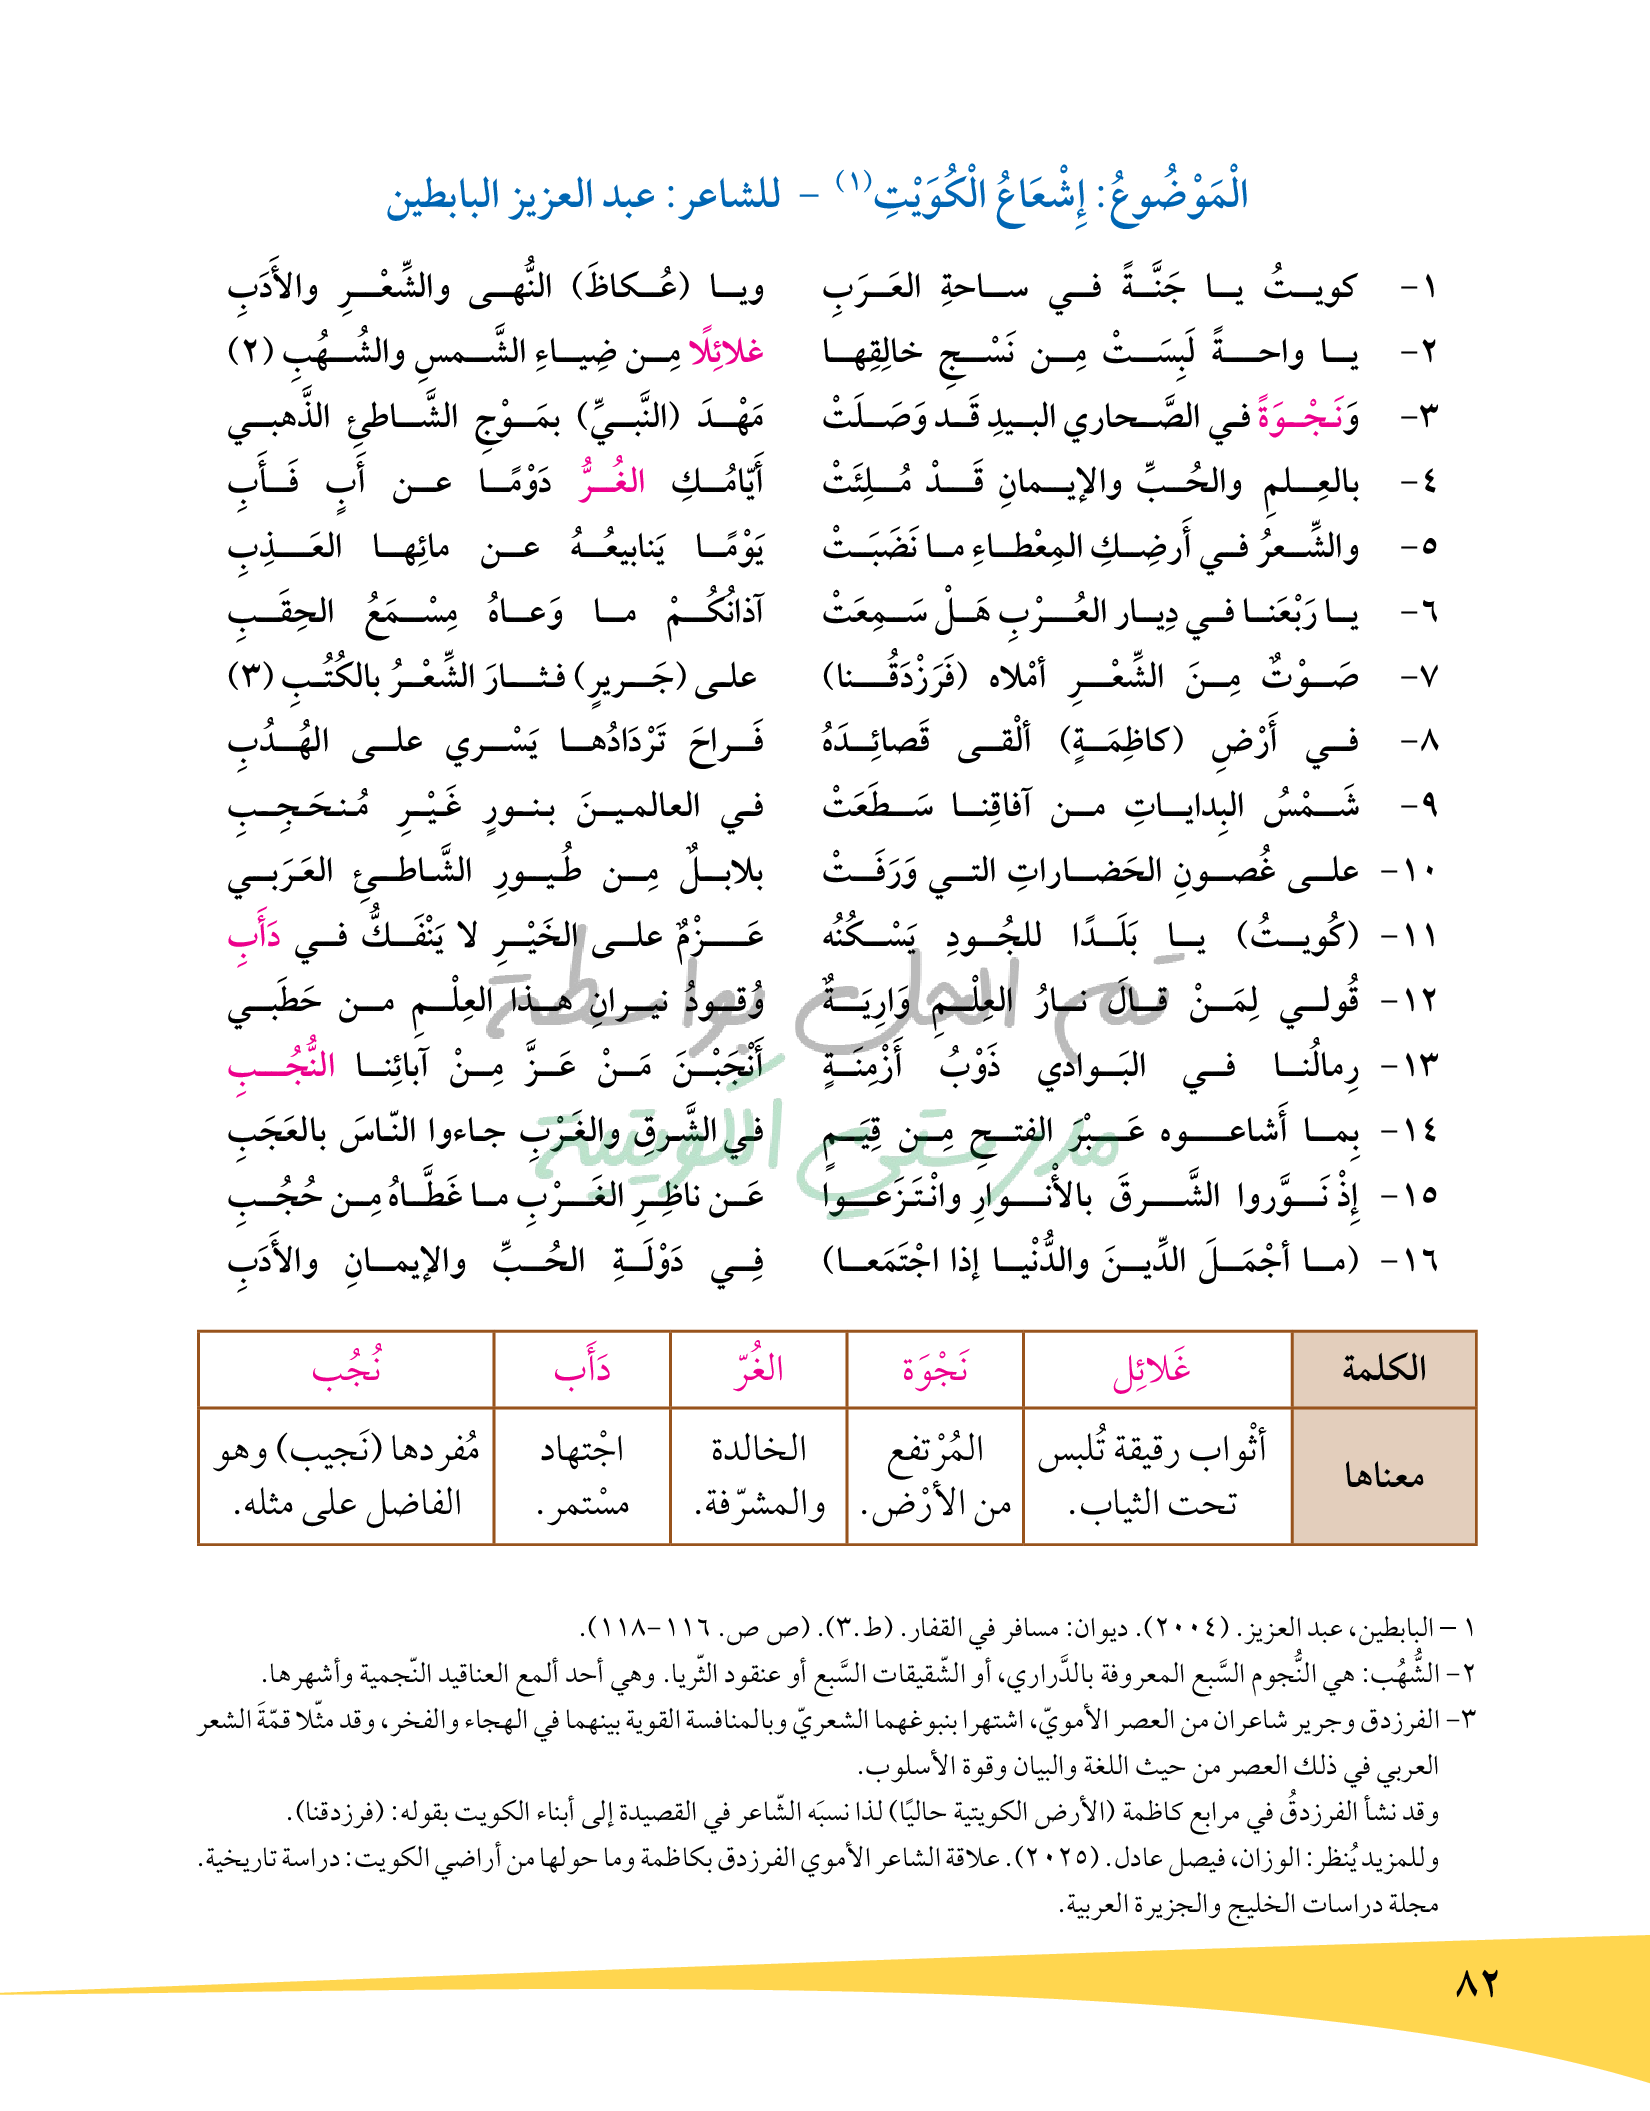 الْمَوْضُوعُ: إِشْعَاعُ الْكُوَيْتِ(١) - للشاعر: عبد العزيز البابطين
١- كويتُ يا جَنَّةً في ساحةِ العَرَبِ ويا (عُكاظَ) النُّهى والشِّعْرِ والأَدَبِ
٢- يا واحةً لَبِسَتْ مِن نَسْجِ خالِقِها غلائِلًا مِن ضِياءِ الشَّمسِ والشُهُبِ (٢)
٣- وَنَجْوَةً في الصَّحاري البيدِ قَد وَصَلَتْ مَهْدَ (النَّبيِّ) بمَوْجِ الشَّاطئِ الذَّهبي
٤- بالعِلمِ والحُبِّ والإيمانِ قَدْ مُلِئَتْ أَيّامُكِ الغُرُّ دَوْمًا عن أَبٍ فَأَبِ
٥- والشِّعرُ في أَرضِكِ المِعْطاءِ ما نَضَبَتْ يَوْمًا يَنابيعُهُ عن مائِها العَذِبِ
٦- يا رَبْعَنا في دِيار العُرْبِ هَلْ سَمِعَتْ آذانُكُمْ ما وَعاهُ مِسْمَعُ الحِقَبِ
٧- صَوْتٌ مِنَ الشِّعْرِ أمْلاه (فَرَزْدَقُنا) على (جَريرٍ) فثارَ الشِّعْرُ بالكُتُبِ (٣)
٨- في أَرْضِ (كاظِمَةٍ) ألْقى قَصائِدَهُ فَراحَ تَرْدَادُها يَسْري على الهُدُبِ
٩- شَمْسُ البِداياتِ من آفاقِنا سَطَعَتْ في العالمينَ بنورٍ غَيْرِ مُنحَجِبِ
١٠- على غُصونِ الحَضاراتِ التي وَرَفَتْ بلابلٌ مِن طُيورِ الشَّاطئِ العَرَبي
١١- (كُويتُ) يا بَلَدًا للجُودِ يَسْكُنُه عَزْمٌ على الخَيْرِ لا يَنْفَكُّ في دَأَبِ
١٢- قُولي لِمَنْ قالَ نارُ العِلْمِ وَارِيَةٌ وُقودُ نيرانِ هذا العِلْمِ من حَطَبي
١٣- رِمالُنا في البَوادي ذَوْبُ أَزْمِنَةٍ أَنْجَبْنَ مَنْ عَزَّ مِنْ آبائِنا النُّجُبِ
١٤- بِما أَشاعوه عَبْرَ الفتحِ مِن قِيَمٍ في الشَّرقِ والغَرْبِ جاءوا النّاسَ بالعَجَبِ
١٥- إِذْ نَوَّروا الشَّرقَ بالأنْوارِ وانْتَزَعوا عَن ناظِرِ الغَرْبِ ما غَطَّاهُ مِن حُجُبِ
١٦- (ما أجْمَلَ الدِّينَ والدُّنْيا إذا اجْتَمَعا) فِي دَوْلَةِ الحُبِّ والإيمانِ والأَدَبِ
تم الحل بواسطة
مدرستي الكويتية
الكلمة غَلائِل نَجْوَة الغُرّ دَأَب نُجُب
معناها أثْواب رقيقة تُلبس تحت الثياب. المُرْتفع من الأرْض. الخالدة والمشرّفة. اجْتهاد مسْتمر. مُفردها (نَجيب) وهو الفاضل على مثله.
١ – البابطين، عبد العزيز. (٢٠٠٤). ديوان: مسافر في القفار. (ط.٣). (ص ص. ١١٦-١١٨).
٢- الشُّهُب: هي النُّجوم السَّبع المعروفة بالدَّراري، أو الشّقيقات السَّبع أو عنقود الثّريا. وهي أحد ألمع العناقيد النّجمية وأشهرها.
٣- الفرزدق وجرير شاعران من العصر الأمويّ، اشتهرا بنبوغهما الشعريّ وبالمنافسة القوية بينهما في الهجاء والفخر، وقد مثّلا قمّةَ الشعر
العربي في ذلك العصر من حيث اللغة والبيان وقوة الأسلوب.
وقد نشأ الفرزدقُ في مرابع كاظمة (الأرض الكويتية حاليًا) لذا نسبَه الشّاعر في القصيدة إلى أبناء الكويت بقوله: (فرزدقنا).
وللمزيد يُنظر: الوزان، فيصل عادل. (٢٠٢٥). علاقة الشاعر الأموي الفرزدق بكاظمة وما حولها من أراضي الكويت: دراسة تاريخية.
مجلة دراسات الخليج والجزيرة العربية.
٨٢